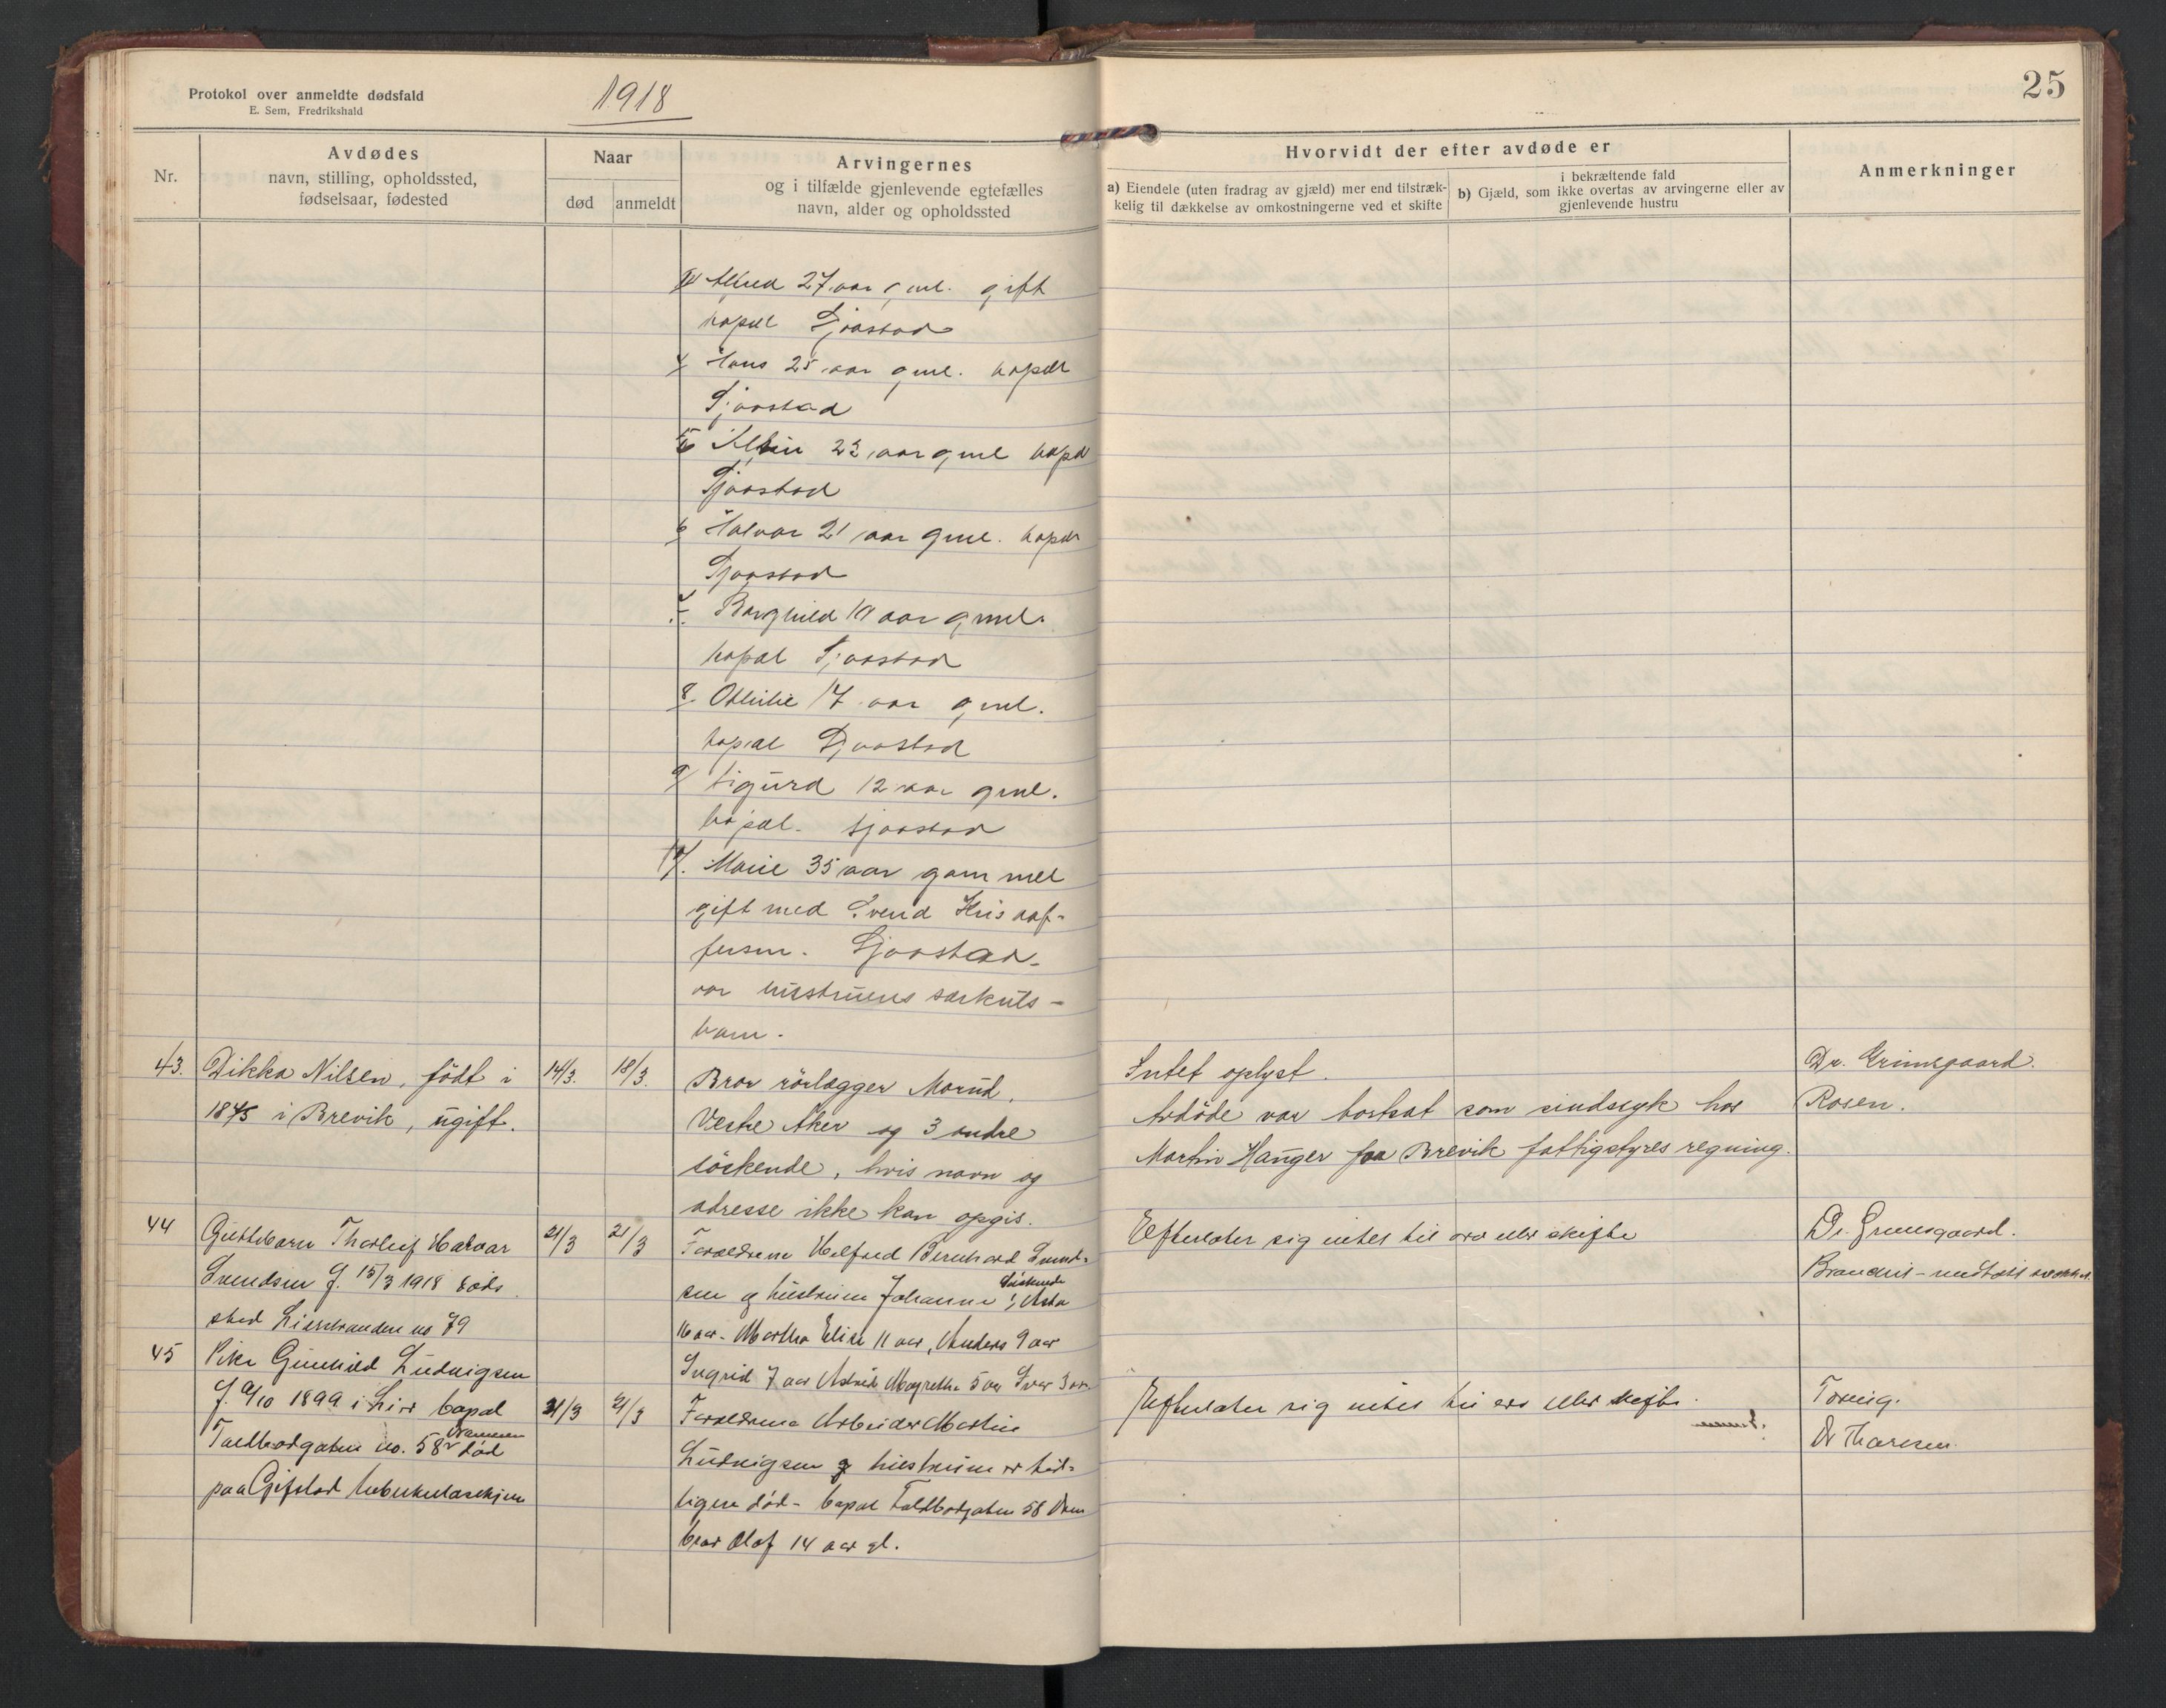 Protokol over anmeldte dødsfald
E. Sem, Fredrikshald
1918
25
Nr.
Avdødes
navn, stilling, opholdssted,
fødselsaar, fødested
Naar
død
anmeldt
Arvingernes
og i tilfælde gjenlevende egtefælles
navn, alder og opholdssted
Hvorvidt der efter avdøde er
a) Eiendele (uten fradrag av gjæld) mer end tilstræk-
kelig til dækkelse av omkostningerne ved et skifte
i bekræftende fald
b) Gjæld, som ikke overtas av arvingerne eller av
gjenlevende hustru
Anmerkninger
Alfred 27 aar gml. gift
bopæl Gjøsstad
4 Hans 25 aar gml. bopæl
Gjøsstad
5 23 aar gml bopæl
Gjøsstad
6 Halvor 21 aar gml. bopæl
Gjøsstad
7 Borghild 19 aar gml.
bopæl Gjøsstad
8 Othilie 17 aar gml.
bopæl Gjøsstad
9/ Sigurd 12 aar gml.
bopæl. Gjøsstad
10/. Marie 35 aar gammel
gift med Svend Kristof-
fersen. Gjøsstad.
var hustruens særkuls-
barn.
43. Dikka Nilsen, født i
1845 i Brevik, ugift.
14/3. 18/3.
Bror rørlægger Morud,
Vestre Aker og 3 andre
søskende, hvis navn og
adresse ikke kan opgis.
Intet oplyst.
Avdøde var bortsat som sindssyk hos
Martin Hanger for Brevik fattigstyres regning.
Dr. Grimsgaard.
Rosen.
44 Guttebarn Thorleif Halvar
Svendsen f. 15/3 1918 døds
sted Lierstranden no 79
21/3 21/3
Forældrene Helfred Bernhard Svend-
sen og hustruen Johanne; Søskende Asta
16 aar. Martha Elise 11 aar, Anders 9 aar
Ingrid 7 aar Astrid Magrethe 5 aar Ivar 3 aar
Efterlater sig intet til arv eller skifte
Dr. Grimsgaard.
45 Pike Gunhild Ludvigsen
f. 9/10 1899 i Lier bopæl
Toldbodgaten no. 58 Drammen død
paa Gifstad tuberkulosehjem
21/3 21/3
Forældrene Arbeider Martin
Ludvigsen og hustruen er tid-
ligere død - bopæl Toldbodgaten 58 Dram
bror Olaf 14 aar gl.
Efterlater sig intet til arv eller skifte.
Dr Thoresen